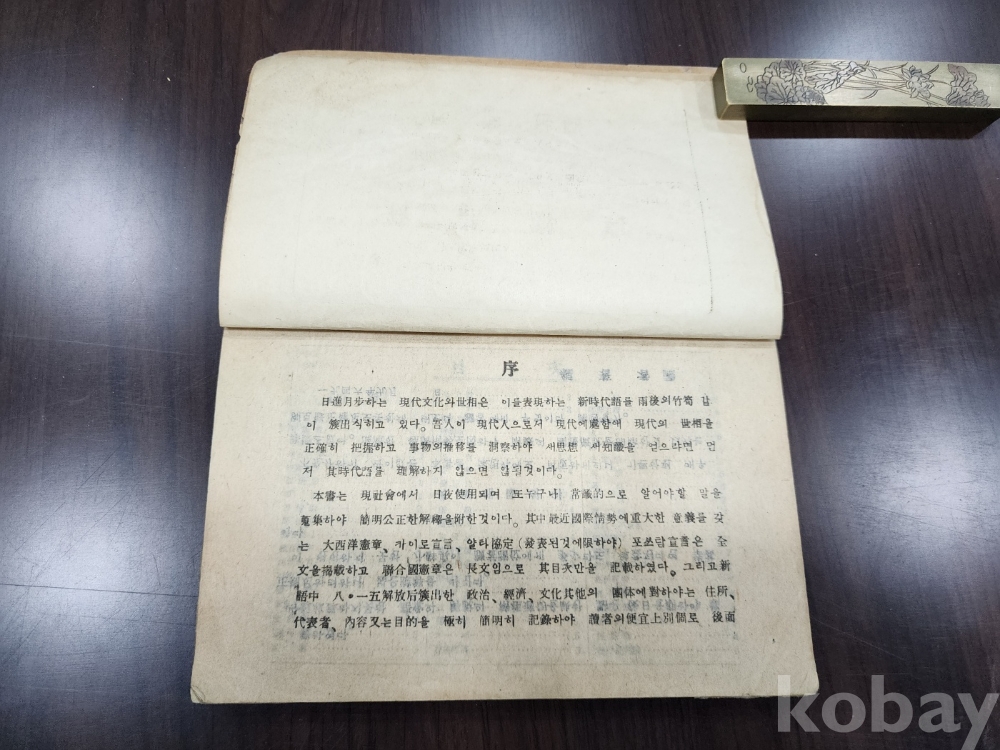 序
日進月步하는 現代文化와 世相은 이를表現하는 新時代語를 雨後의竹筍 같
이 簇出식히고 있다. 吾人이 現代人으로서 現代에處함에 現代의 世相을
正確히 把握하고 事物의推移를 洞察하야 새思想 새知識을 얻으랴면 먼
저 其時代語를 理解하지 않으면 않될것이다.
本書는 現社會에서 日夜使用되며 또누구나 常識的으로 알어야할 말을
蒐集하야 簡明公正한解釋을附한것이다. 其中最近國際情勢에重大한 意義를 갖
는 大西洋憲章、카이로宣言、얄타協定(發表된것에限하야) 포쓰담宣言은 全
文을揭載하고 聯合國憲章은 長文임으로 其目次만을 記載하였다. 그리고新
語中 八•一五解放后簇出한 政治、經濟、文化其他의 團体에對하야는 住所、
代表者、內容又는目的을 極히 簡明히 記錄하야 讀者의便宜上別個로 後面
kobay